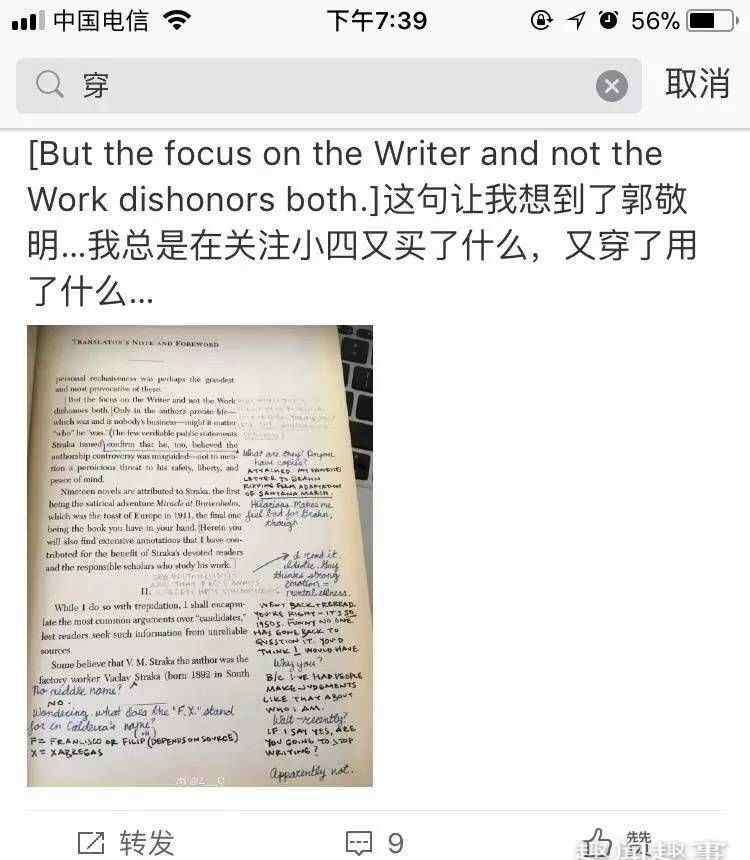 中国电信
下午7:39
56%
穿
取消
[But the focus on the Writer and not the
Work dishonors both.]这句让我想到了郭敬
明...我总是在关注小四又买了什么，又穿了用
了什么...
TRANSLATOR'S NOTE AND FOREWORD
personal reclusiveness was perhaps the grandest
and most provocative of these.
[But the focus on the Writer and not the Work
dishonors both.] Only in the author's private life—
which was and is nobody's business—might it matter
"who" he "was." (The few verifiable public statements
Straka issued confirm that he, too, believed the
authorship controversy was misguided—not to men-
tion a pernicious threat to his safety, liberty, and
peace of mind.
Nineteen novels are attributed to Straka, the first
being the satirical adventure Miracle at Braxenholm,
which was the toast of Europe in 1911, the final one
being the book you have in your hand. [Herein you
will also find extensive annotations that I have con-
tributed for the benefit of Straka's devoted readers
and the responsible scholars who study his work.
II.
While I do so with trepidation, I shall encapsu-
late the most common arguments over "candidates,"
lest readers seek such information from unreliable
sources.
Some believe that V. M. Straka the author was the
factory worker Vaclav Straka (born 1892 in South
No middle name?
NO.
Wondering what does the "F.X." stand
for in Caldeira's name?
F = FRANCISCO OR FILIP (DEPENDS ON SOURCE)
X = XABREGAS
What are they? Anyone
have copies?
ATTACHED MY FAVORITE
LETTER TO BRAHN
RIPPING FILM ADAPTATION
OF SANTANA MARCH.
Hilarious. Makes me
feel bad for Grahn,
though
I read it.
Idiotic. Guy
thinks strong
emotion =
mental illness.
WENT BACK + REREAD.
YOU'RE RIGHT – IT'S SO
1950S. FUNNY NO ONE
HAS GONE BACK TO
QUESTION IT. YOU'D
THINK I WOULD HAVE
Why you?
B/C I'VE HAD PEOPLE
MAKE JUDGEMENTS
LIKE THAT ABOUT
WHO I AM.
Wait – recently?
IF I SAY YES, ARE
YOU GOING TO STOP
WRITING?
Apparently not.
转发
9
赞
趣闻趣事